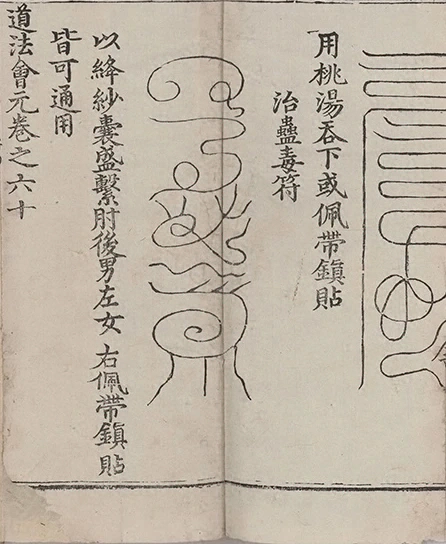 用桃湯吞下或佩帶鎮貼
治蠱毒符
以絳紗囊盛繫肘後男左女右佩帶鎮貼
皆可通用
道法會元卷之六十